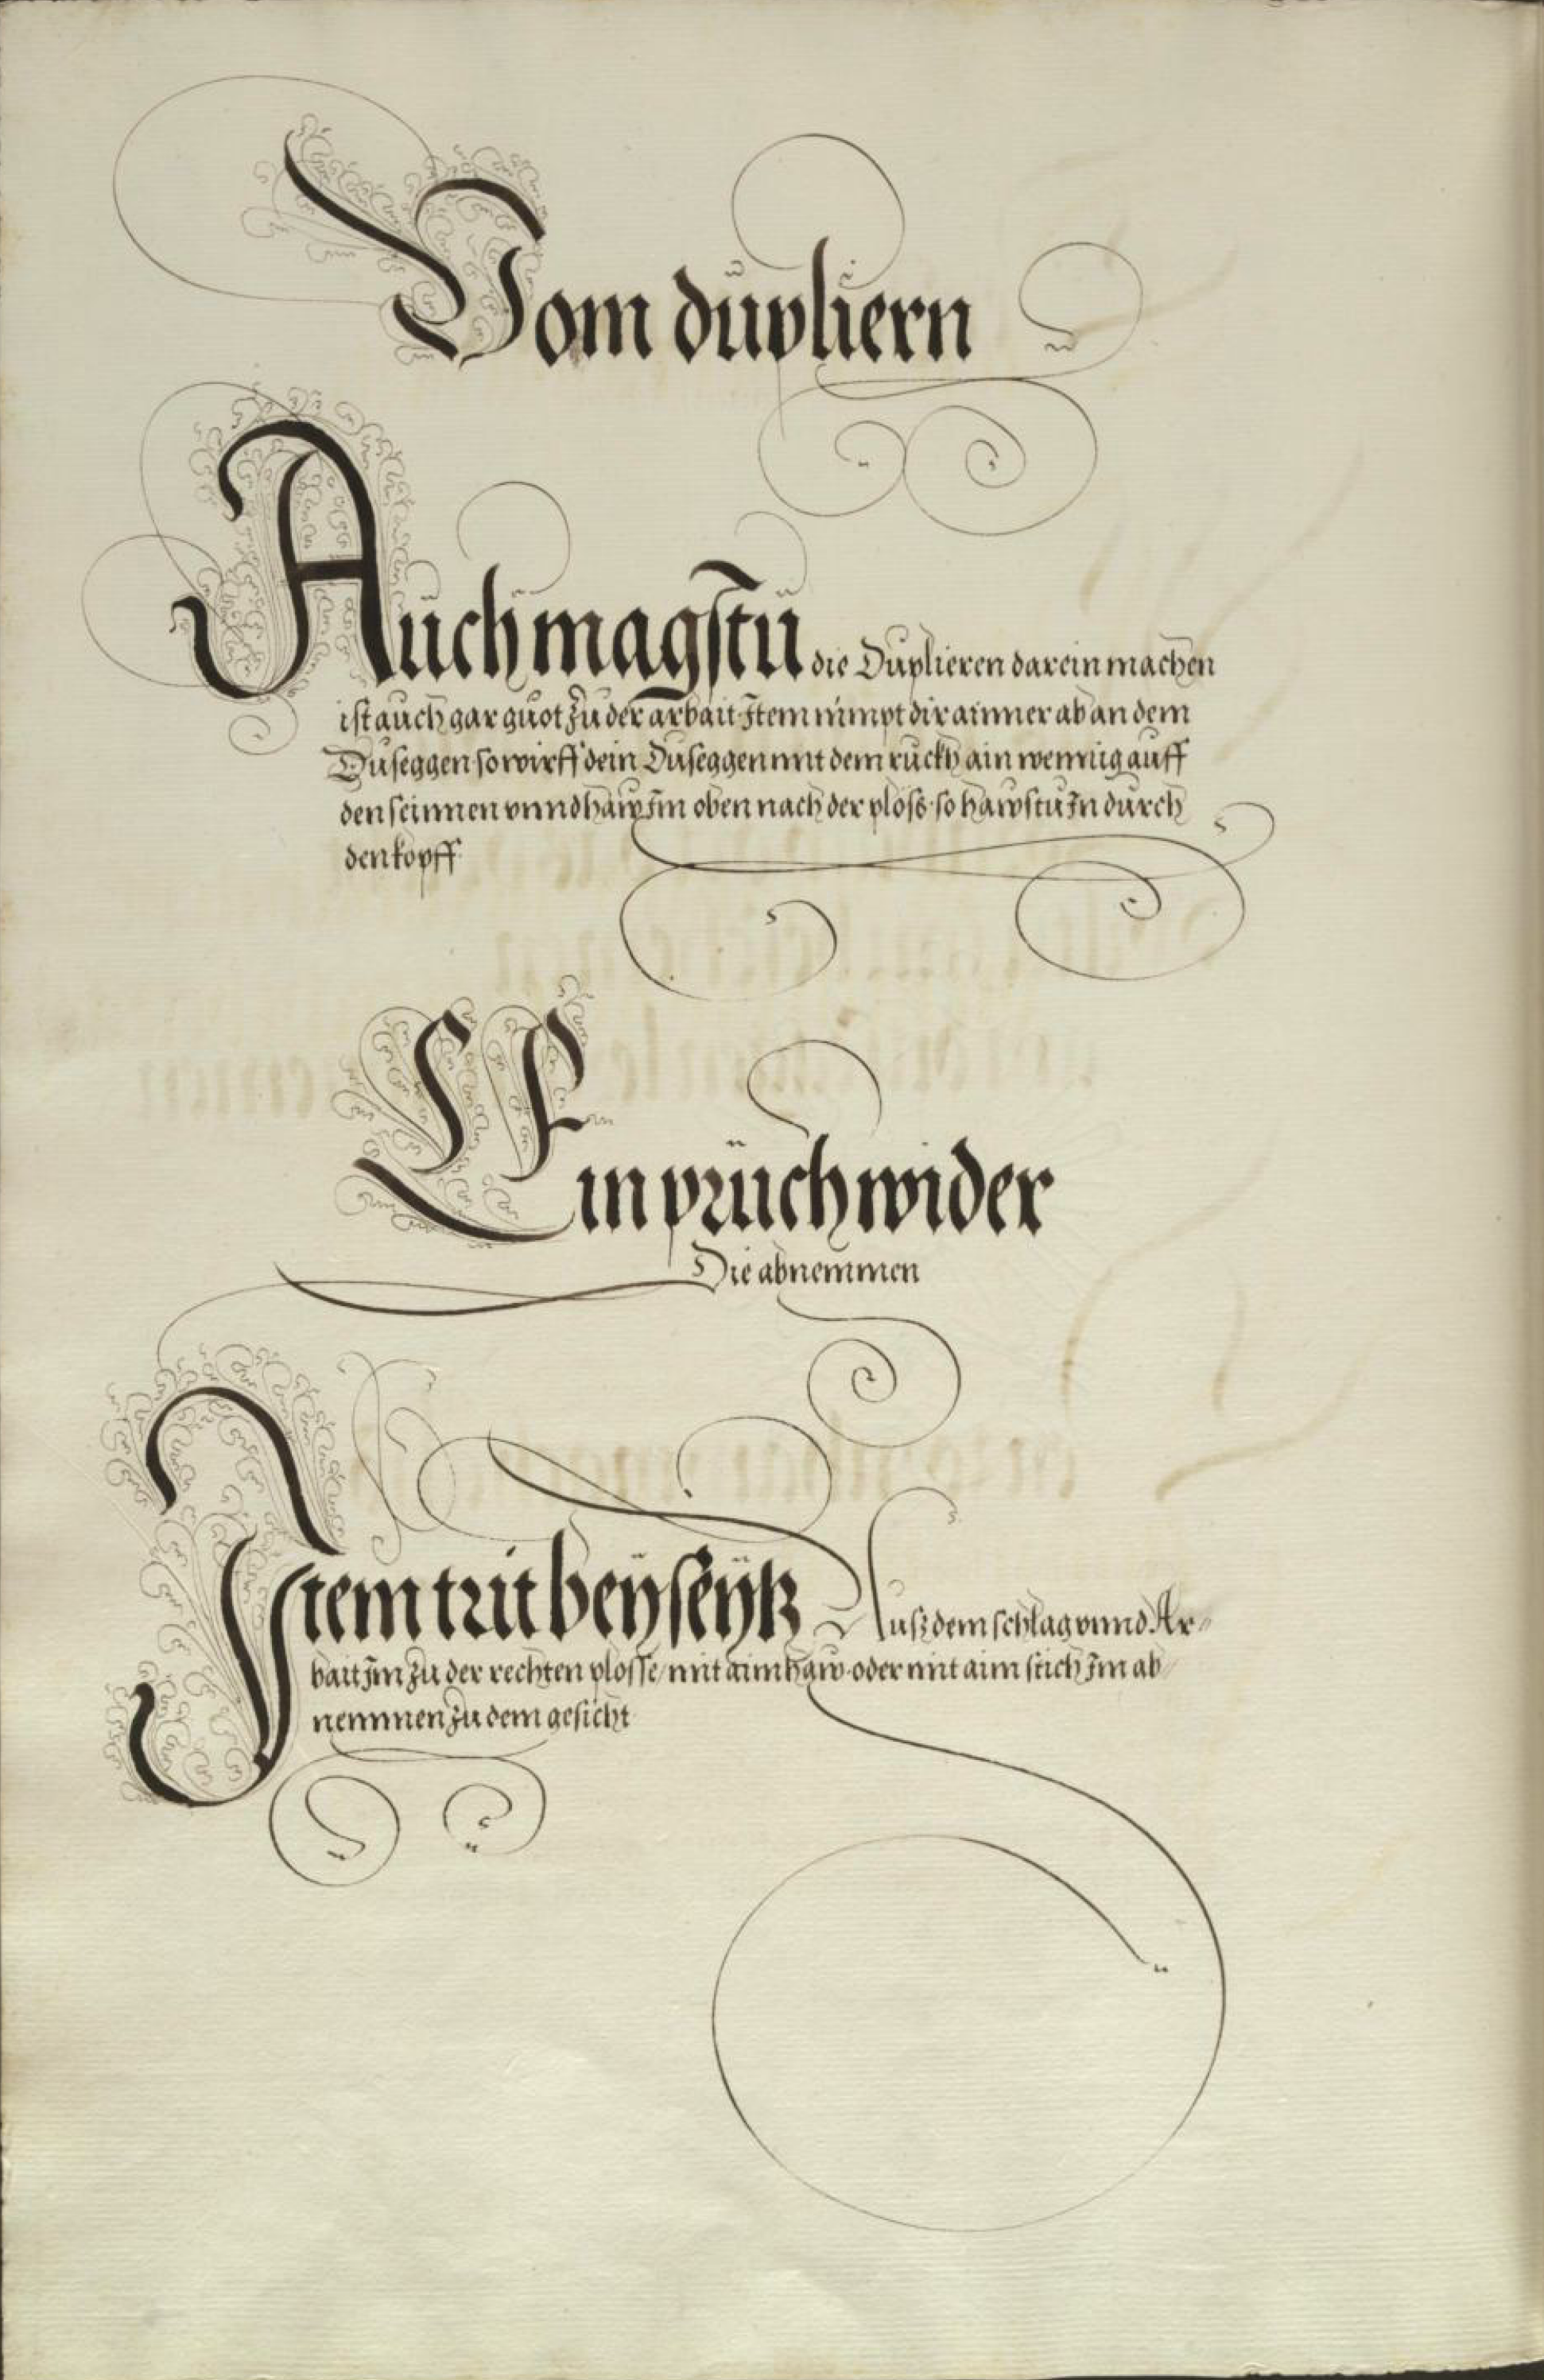 Vom dupliern
Auch magstu die Duplieren darein machen
ist auch gar guot zu der arbait Item nimpt dir ainner ab an dem
Duseggen so wirff dein Duseggen mit dem ruckh ain wennig auff
den seinnen vnnd haw Im oben nach der ploss so hawstu In durch
den kopff
Ein pruch wider
Die abnemmen
Item trit beÿseÿtz Ausz dem schlag vnnd Ar=
bait Im zu der rechten plosse / mit aim haw oder mit aim stich Im ab/
nemmen zu dem gesicht